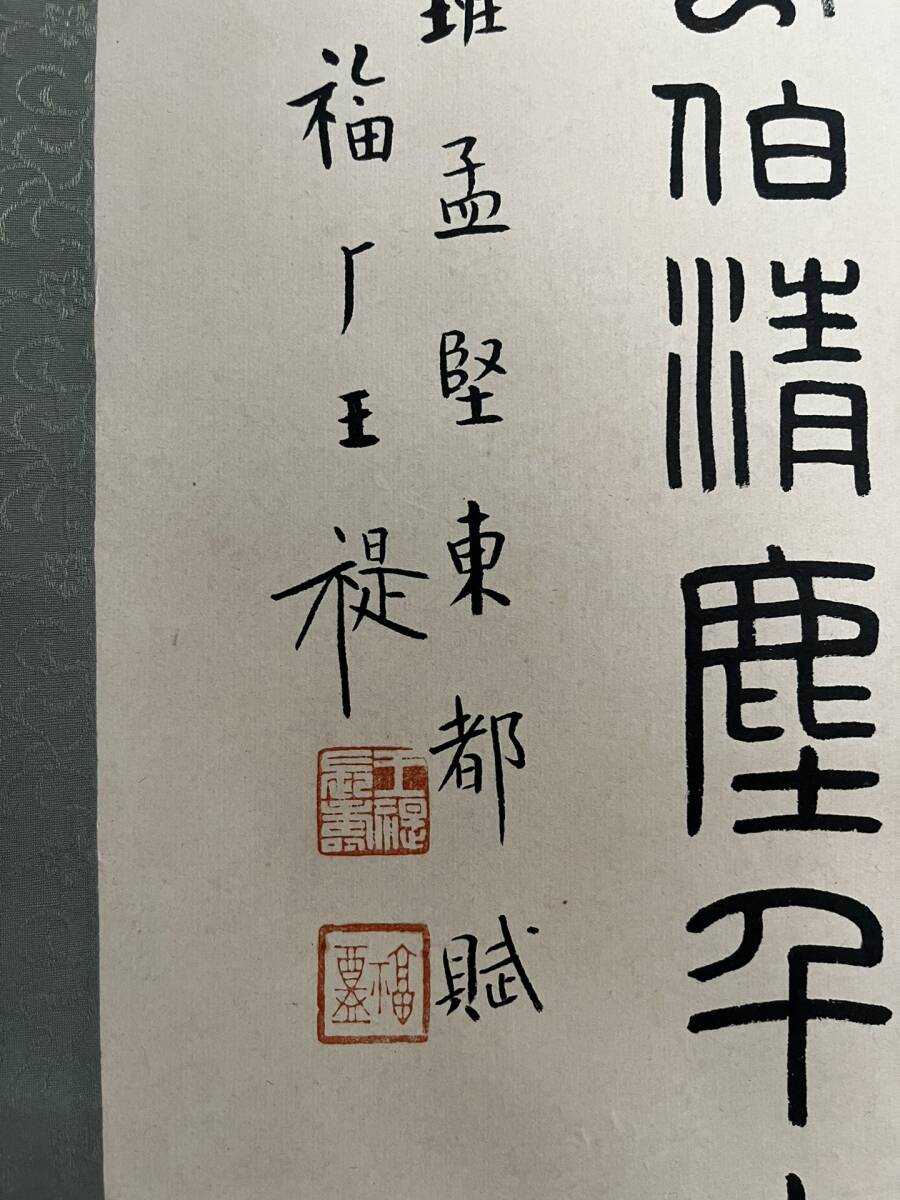 伯清塵千
班孟堅東都賦
福厂王禔
王禔長壽
福盦